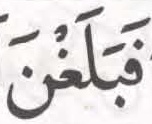 فَبَلَغْنَ